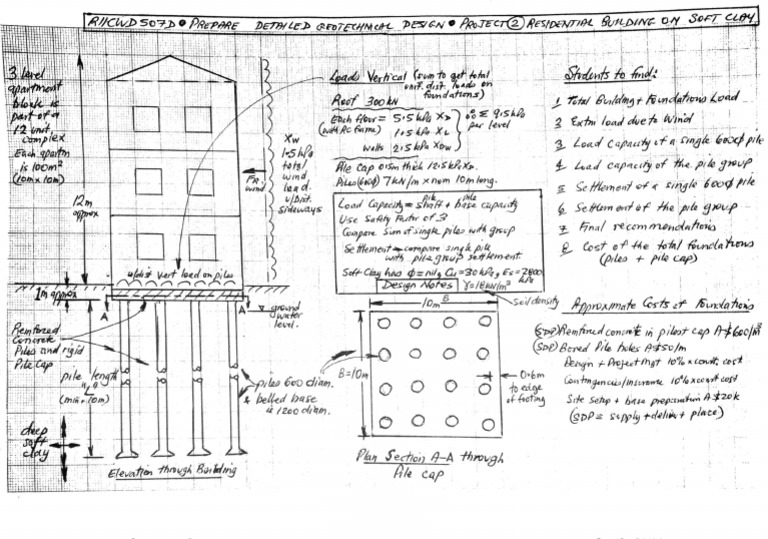 RIICWD507D • PREPARE DETAILED GEOTECHNICAL DESIGN • PROJECT 2 RESIDENTIAL BUILDING ON SOFT CLAY
3 level
apartment
block is
part of a
12 unit
complex
Each apartm
is 100m²
(10m x 10m)
12m
approx
1m approx
Reinforced
Concrete
Piles and rigid
Pile Cap
pile length
(min 10m)
deep
soft
clay
u/dist vert load on piles
A
A
ground
water
level.
Elevation through Building
Xw
1.5 kPa
total
wind
load.
u/Dist.
sideways
wind
Loads Vertical (sum to get total
unif. dist. loads on
foundations)
Roof 300kN
Each floor = 5.5 kPa XD
(with RC frame) 1.5 kPa XL
walls 2.5 kPa XDW
∴ Σ 9.5 kPa
per level
Pile Cap 0.5m thick 12.5 kPa XD.
Piles (600ϕ) 7kN/m x nom 10m long.
Load Capacity = pile shaft + pile base capacity
Use Safety Factor of 3
Compare Sum of single piles with group
Settlement - compare single pile
with pile group settlement.
Soft Clay has ϕ = nil, Cu = 30 kPa, Es = 2800 kPa
Design Notes γ = 18 kN/m³
soil density
10m B
B = 10m
0.6m
to edge
of footing
piles 600 diam.
& belled base
is 1200 diam.
Plan Section A-A through
Pile cap
Students to find:
1 Total Building + Foundations Load
2 Extra load due to Wind
3 Load Capacity of a single 600ϕ pile
4 Load capacity of the pile group
5 Settlement of a single 600ϕ pile
6 Settlement of the pile group
7 Final recommendations
8 Cost of the total foundations
(piles + pile cap)
Approximate Costs of Foundations
(SDP) Reinforced concrete in piles + cap A$600/m³
(SDP) Bored Pile holes A$50/m
Design + Project Mgt 10% x const. cost
Contingencies/insurance 10% x const cost
Site setup + base preparation A$20k
(SDP = supply + deliver + place)